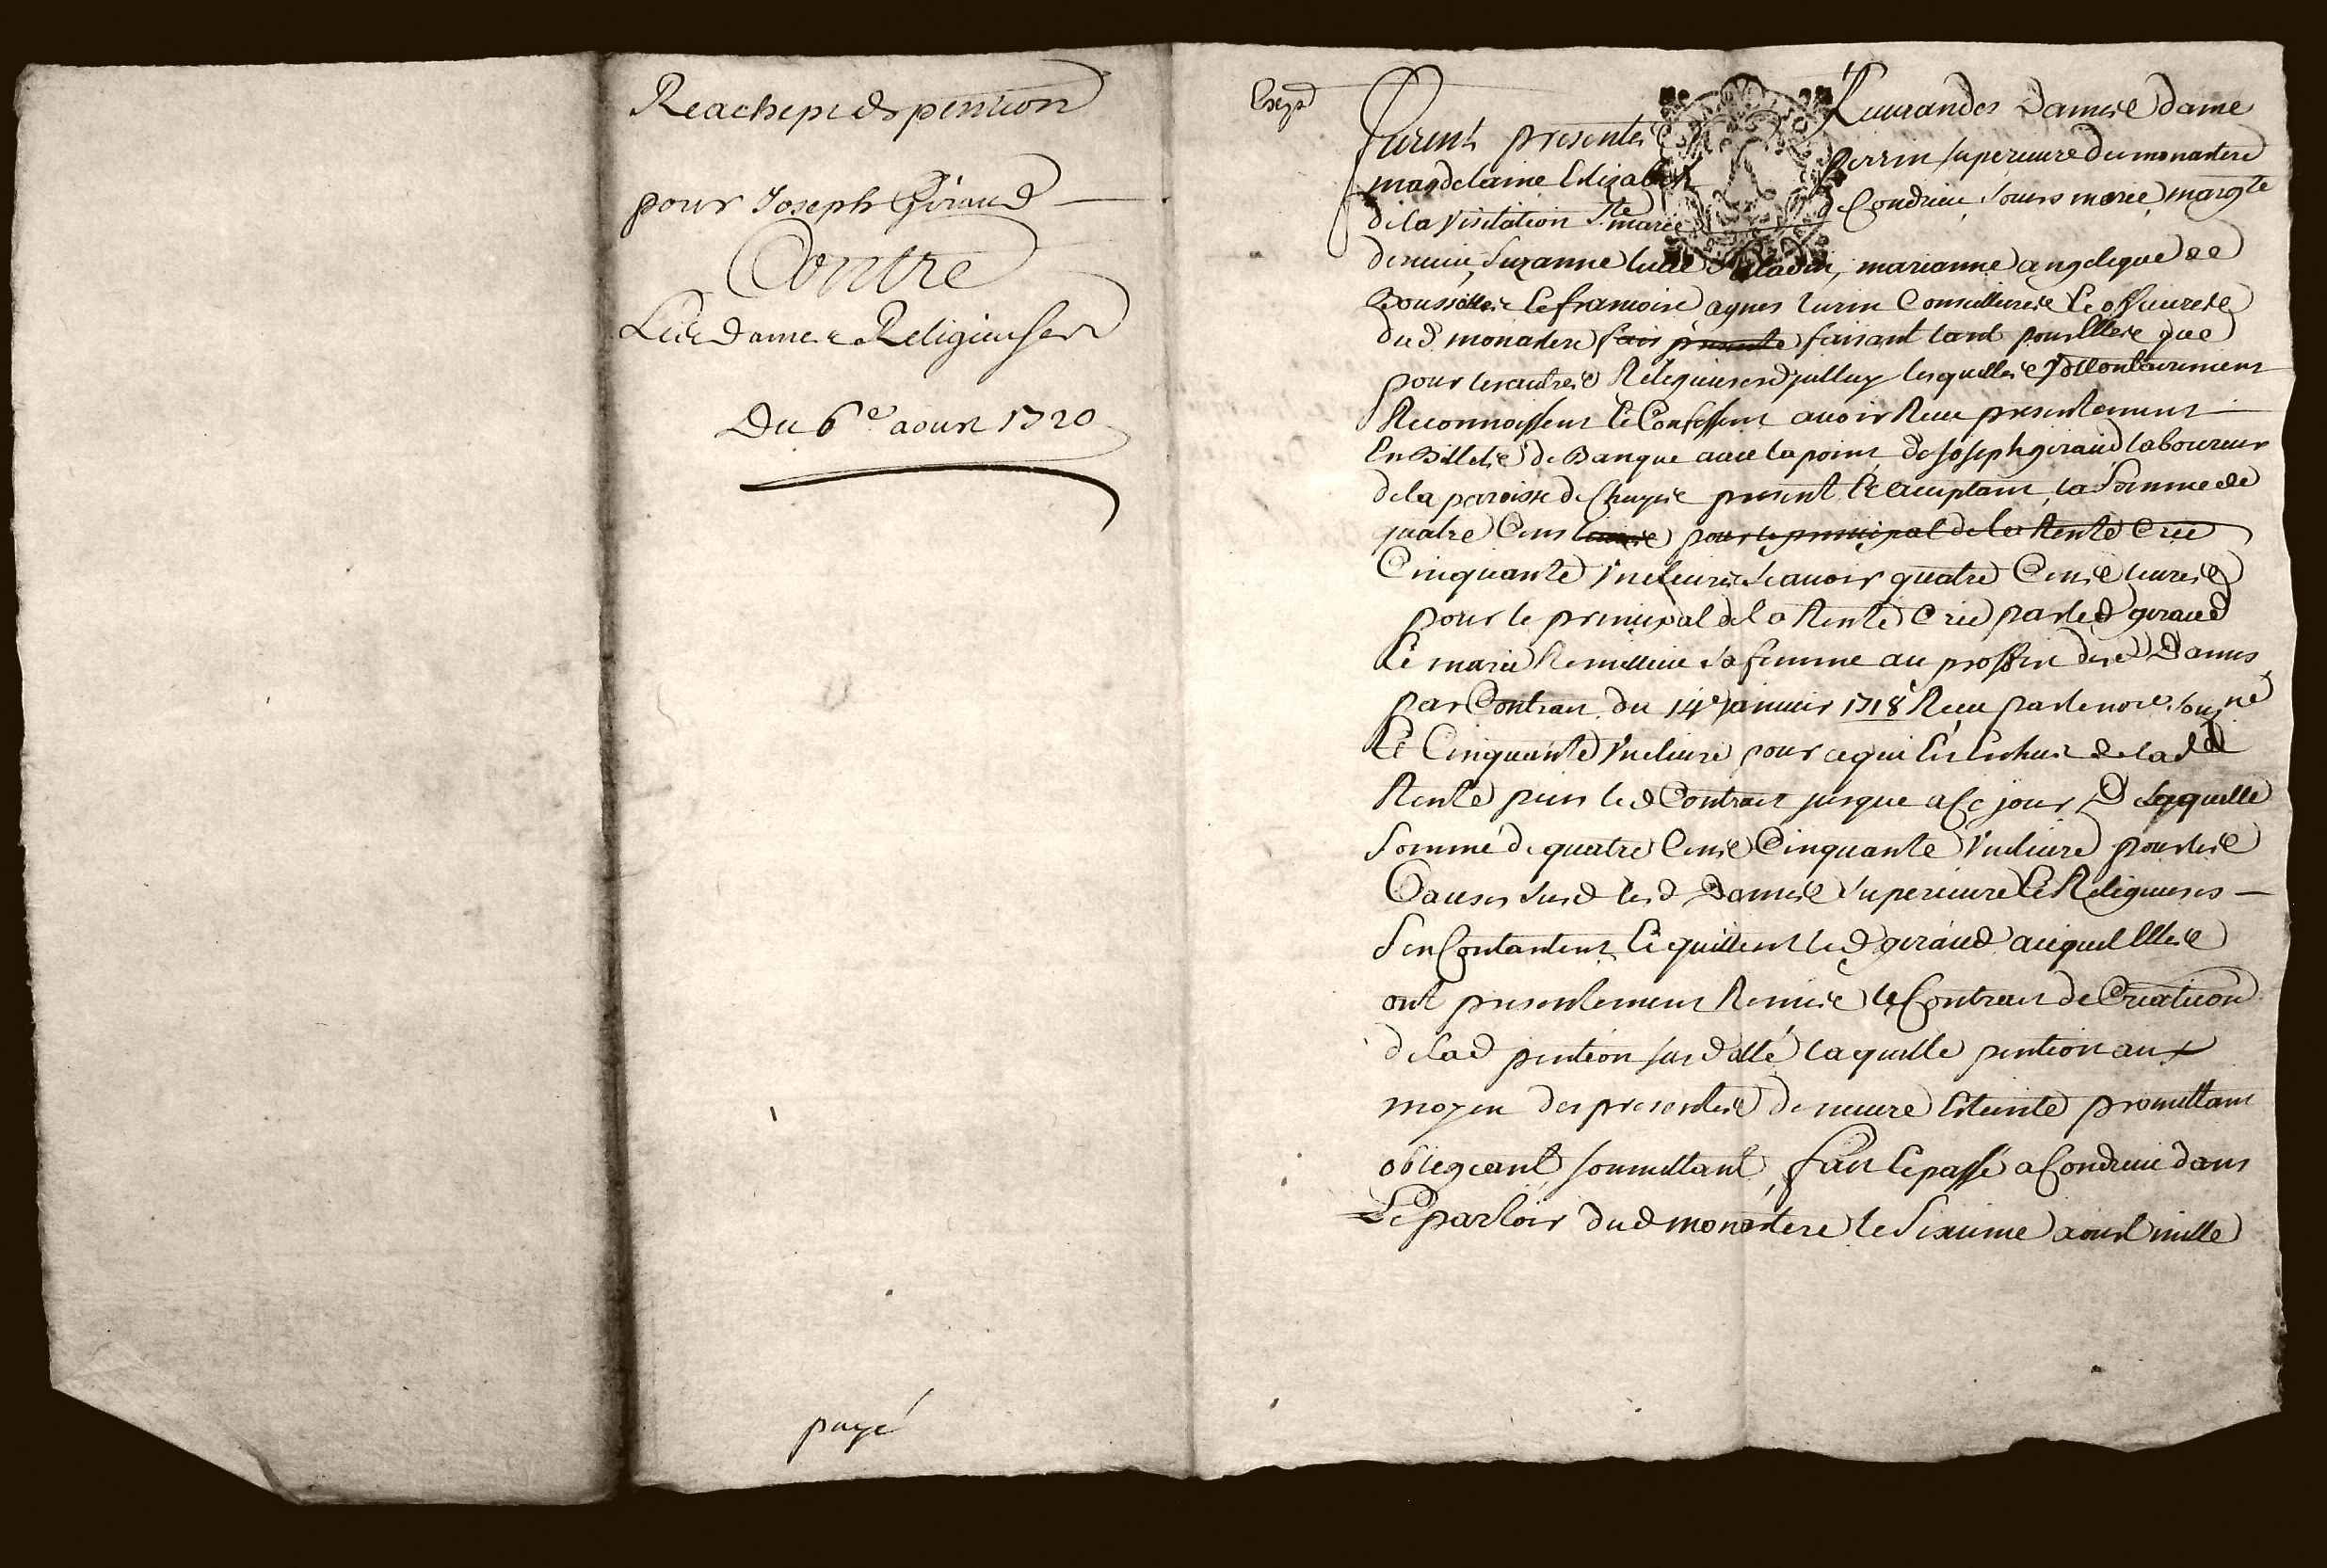 Reachept de pention
pour Joseph Giraud
Contre
Les Dames Religieuses
Du 6e aoust 1720
payé
Exp.d
Furent presentes Reverandes Dames dame
magdelaine Elizabeth Perrin superieure du monastere
de la Visitation Ste marie de Condrieu, soeurs marie margte
Suzanne marianne angelique de
Boussillie et francoise agnes Turin Conseilleres et officieres
dud monastere fais presente faisant tant pour Elles que
pour les autres Religieuses dycelluy lesquelles vollontairement
Reconnoissent et Confessent avoir Receu presentement
En Billets de Banque avec la point de Joseph giraud laboureur
de la paroisse de Chuyes present et acceptant, la Somme de
quatre Cens livres pour le principal de la Rente Créé
Cinquante une livres scavoir quatre Cens livres
pour le principal de la Rente Créé par led giraud
et marie Remillieu sa femme au proffit desd Dames
par Contrat du 14e janvier 1718 Receu par le nore sousne
et Cinquante une livre pour ce qui Est Eschus de lad
Rente puis led Contract jusque a ce jour De laquelle
Somme de quatre Cens Cinquante une livre pour les
Causes susd lesd Dames superieure et Religieuses
sen Contantent et quittent led giraud auquel Elles
ont presentement Remise le Contract de Creation
de lad pention susd datté laquelle pention aux
moyen des presentes demeure Esteinte promettant
obligeant, soumettant, fait et passé a Condrieu dans
Le parloir dud monastere le Sixieme aoust mille